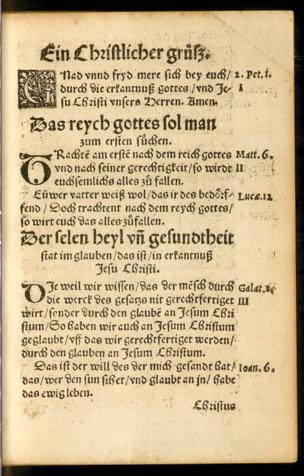 Ein Christlicher grůsz.
GNad vnnd fryd mere sich bey euch / 2. Pet. i.
durch die erkantnuß gottes / vnd Je- 1
su Christi vnsers Herren. Amen.
Das reych gottes sol man
zum ersten sůchen.
TRachtē am erstē nach dem reich gottes Matt. 6.
vnd nach seiner gerechtigkeit / so wirdt II
euch semlichs alles zů fallen.
Eüwer vatter weiß wol / das ir des bedörf- Lucæ. 12
fend / Doch trachtent nach dem reych gottes /
so wirt euch das alles zůfallen.
Der selen heyl vñ gesundtheit
stat im glauben / das ist / in erkantnuß
Jesu Christi.
DJe weil wir wissen / das der mēsch durch Galat. 2.
die werck des gesatzs nit gerechtfertiget III
wirt / sender durch den glaubē an Jesum Chri
stum / So haben wir auch an Jesum Christum
geglaubt / vff das wir gerechtfertiget werden /
durch den glauben an Jesum Christum.
Das ist der will des der mich gesandt hat / Ioan. 6.
das / wer den sun sihet / vnd glaubt an jn / habe
das ewig leben.
Christus